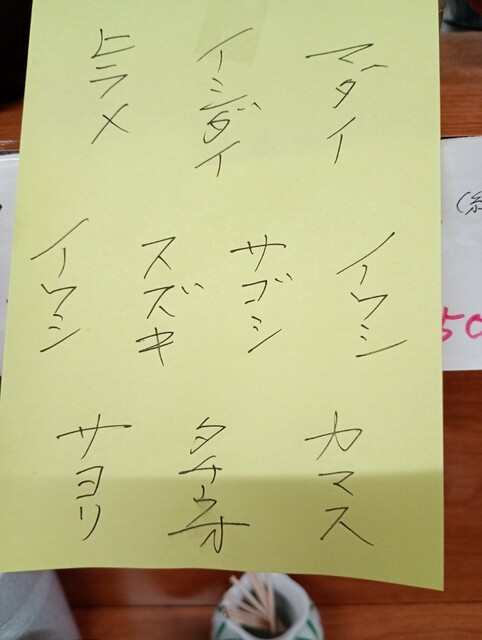 マダイ
イシダイ
ヒラメ
イワシ
サゴシ
スズキ
イワシ
カマス
タチウオ
サヨリ
50